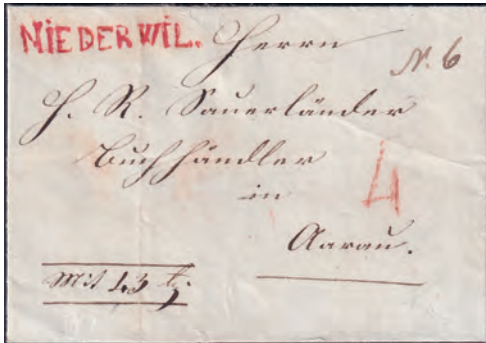 NIEDERWIL. Herrn
N. 6
H. R. Sauerländer
Buchhändler
in
4
Aarau.
Mit 13